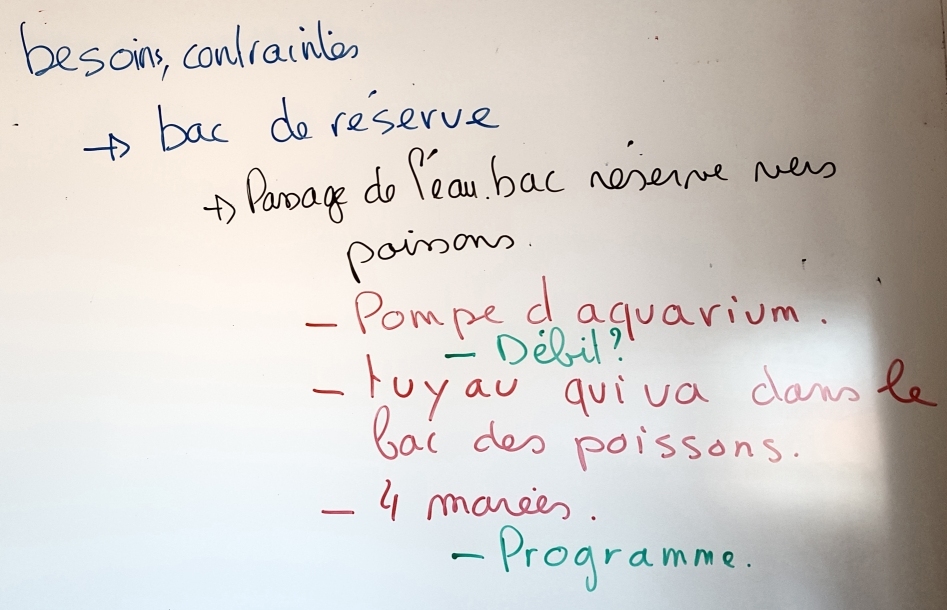 besoins, contraintes
→ bac de réserve
→ Passage de l'eau. bac réserve vers
poissons.
- Pompe d aquarium.
- Débit?
- tuyau qui va dans le
bac des poissons.
- 4 marées.
- Programme.